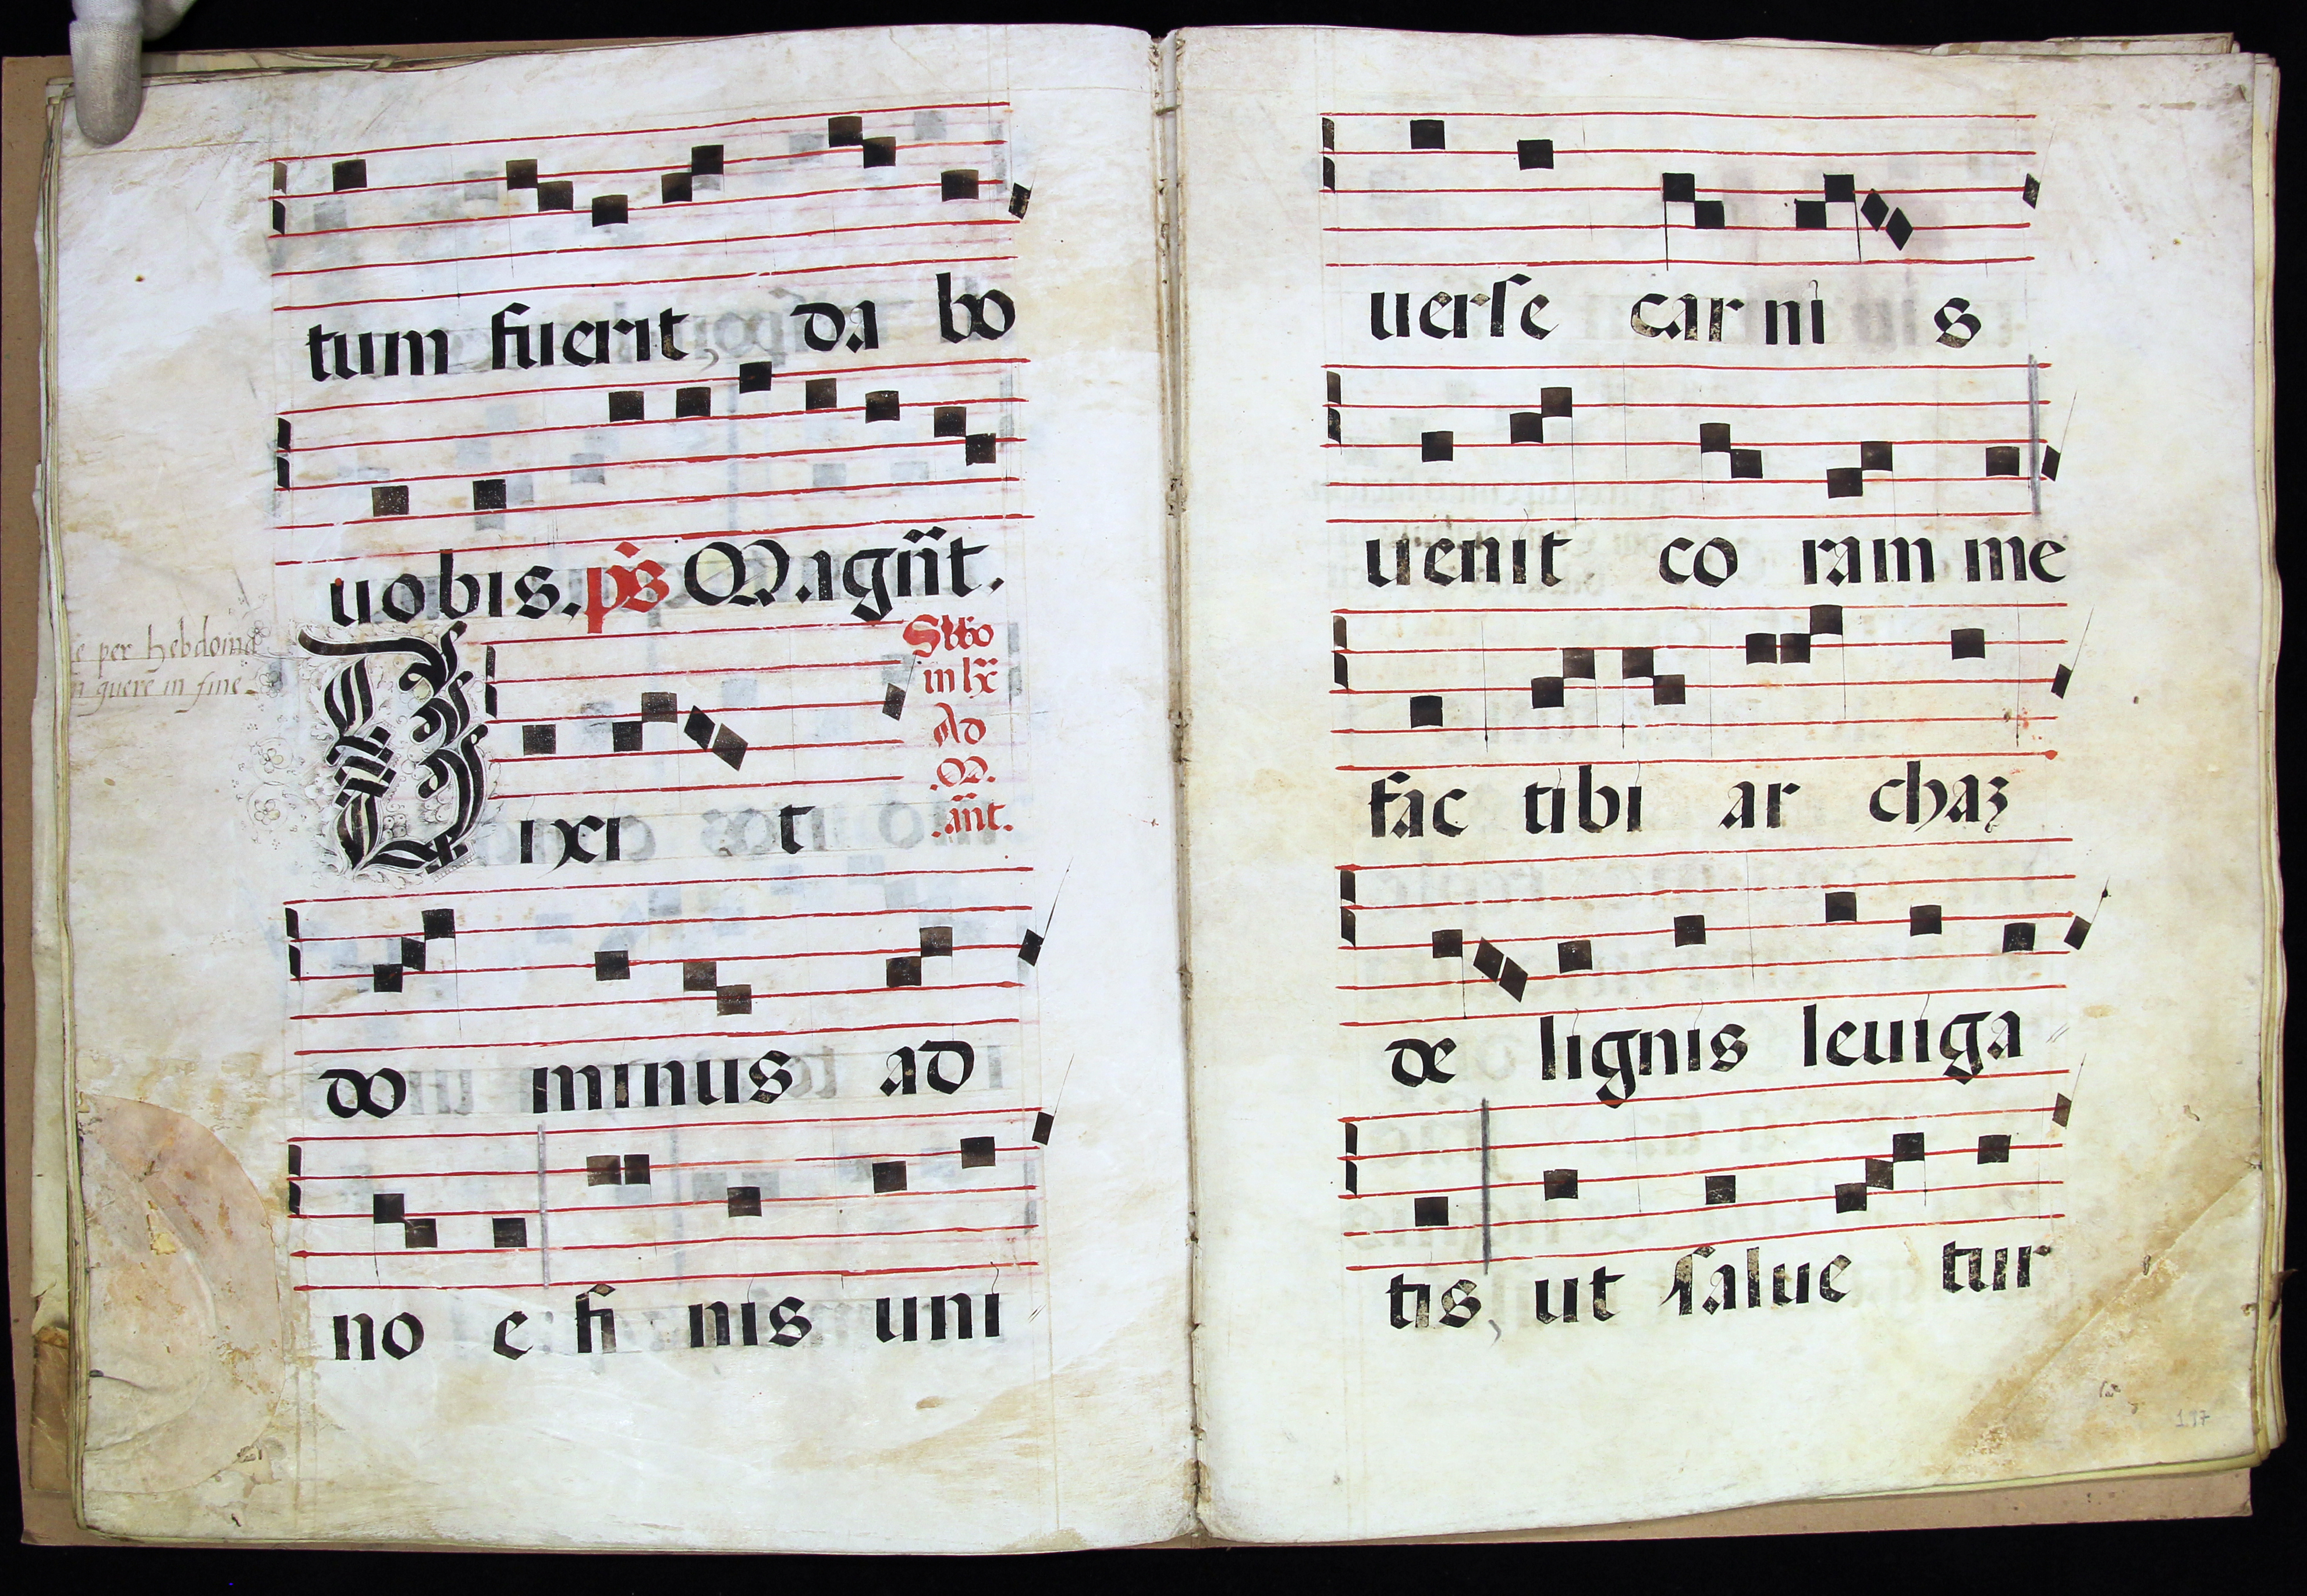 tum fuerit, da bo
uobis. ps Magñt.
e per hebdoma
n quere in fine
Sbbo
in lx
Ad
M.
.añt.
Dixi t
do minus ad
no e fi nis uni
uerse car ni s
uenit co ram me
fac tibi ar chaz
de lignis leuiga
tis, ut salue tur
197